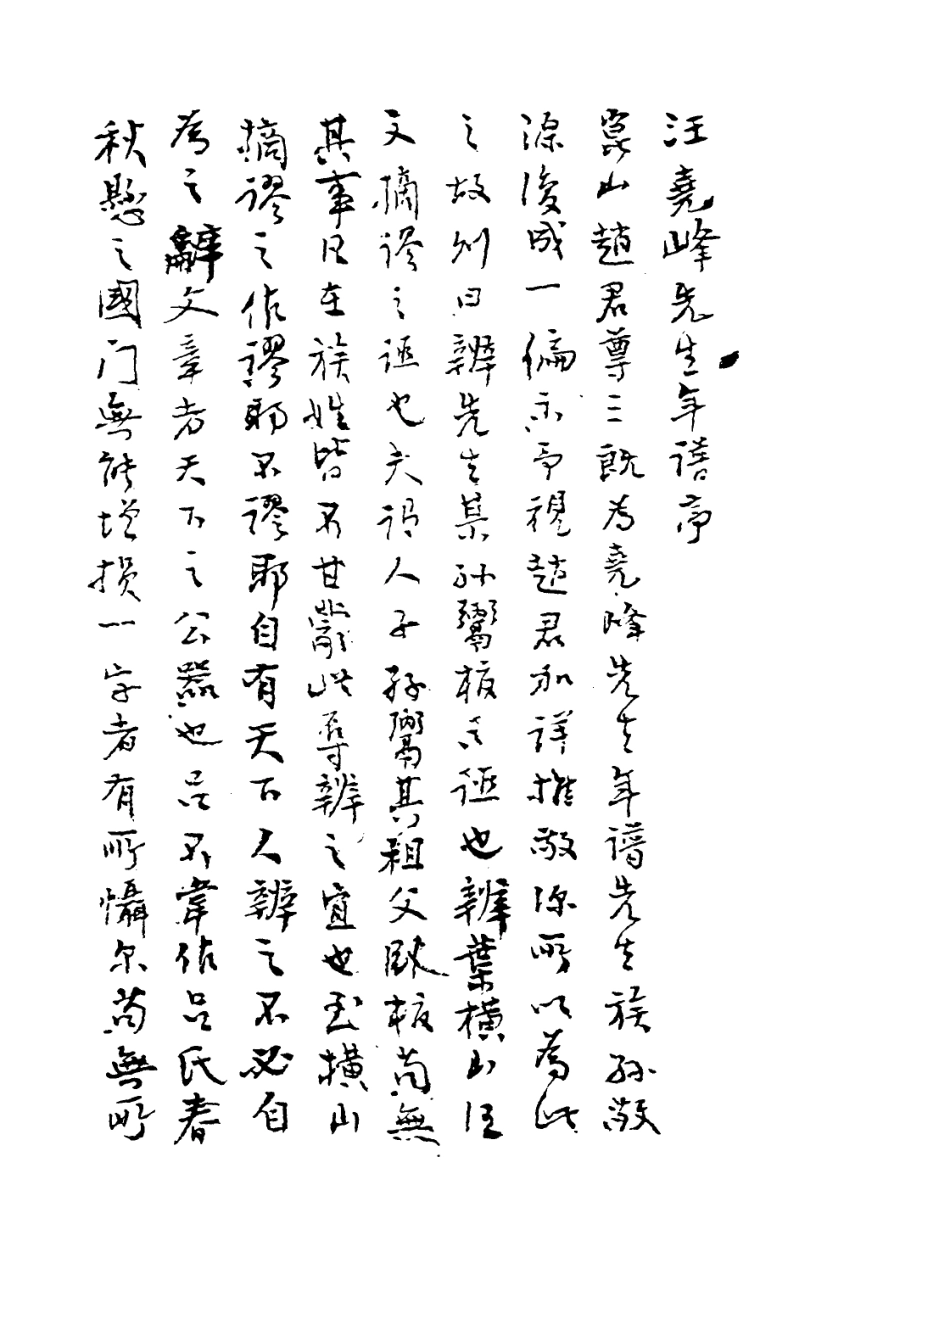 汪堯峰先生年譜序
崑山趙君尊三既為堯峰先生年譜先生族孫敬
源復成一偏示予視趙君加詳推敬源所以為此
之故則曰辨先生集孙鬻板之誣也辨葉橫山汪
文摘謬之誣也夫謂人子孫鬻其祖父戚板苟無
其事凡在族姓皆不甘嘿此辱辨之宜也至橫山
摘謬之作謬耶不謬耶自有天下人辨之不必自
為之辭文章者天下之公器也呂不韋作呂氏春
秋懸之國门無能增損一字者有所懾尔苟無所